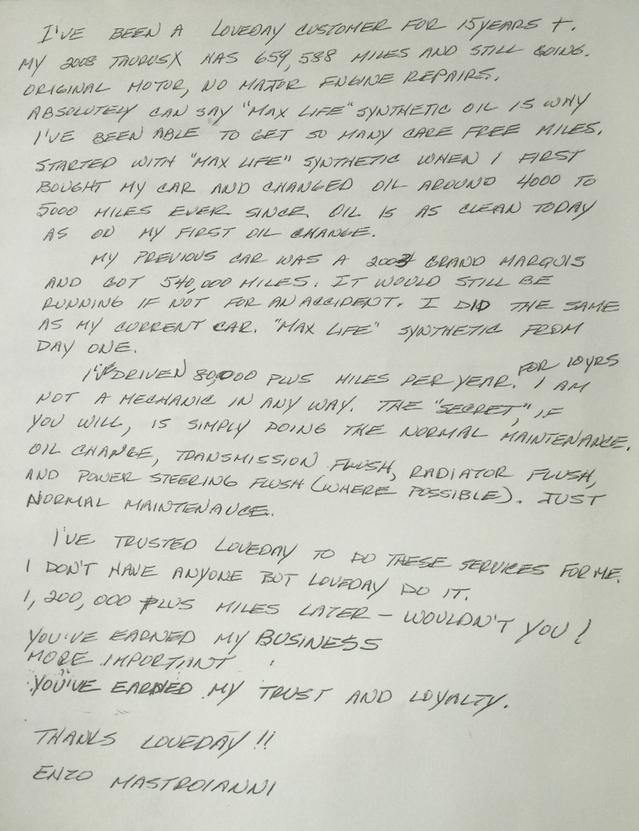 I'VE BEEN A LOVEDAY CUSTOMER FOR 15 YEARS +.
MY 2008 TAURUS X HAS 659,588 MILES AND STILL GOING.
ORIGINAL MOTOR, NO MAJOR ENGINE REPAIRS.
ABSOLUTELY CAN SAY "MAX LIFE" SYNTHETIC OIL IS WHY
I'VE BEEN ABLE TO GET SO MANY CARE FREE MILES.
STARTED WITH "MAX LIFE" SYNTHETIC WHEN I FIRST
BOUGHT MY CAR AND CHANGED OIL AROUND 4000 TO
5000 MILES EVER SINCE. OIL IS AS CLEAN TODAY
AS ON MY FIRST OIL CHANGE.
MY PREVIOUS CAR WAS A 2003 GRAND MARQUIS
AND GOT 540,000 MILES. IT WOULD STILL BE
RUNNING IF NOT FOR AN ACCIDENT. I DID THE SAME
AS MY CURRENT CAR. "MAX LIFE" SYNTHETIC FROM
DAY ONE.
I'VE DRIVEN 80,000 PLUS MILES PER YEAR. FOR 10 YRS I AM
NOT A MECHANIC IN ANY WAY. THE "SECRET", IF
YOU WILL, IS SIMPLY DOING THE NORMAL MAINTENANCE.
OIL CHANGE, TRANSMISSION FLUSH, RADIATOR FLUSH,
AND POWER STEERING FLUSH (WHERE POSSIBLE). JUST
NORMAL MAINTENAUCE.
I'VE TRUSTED LOVEDAY TO DO THESE SERVICES FOR ME.
I DON'T HAVE ANYONE BUT LOVEDAY DO IT.
1,200,000 PLUS MILES LATER - WOULDN'T YOU?
YOU'VE EARNED MY BUSINESS
MORE IMPORTANT
YOU'VE EARNED MY TRUST AND LOYALTY.
THANKS LOVEDAY !!
ENZO MASTROIANNI